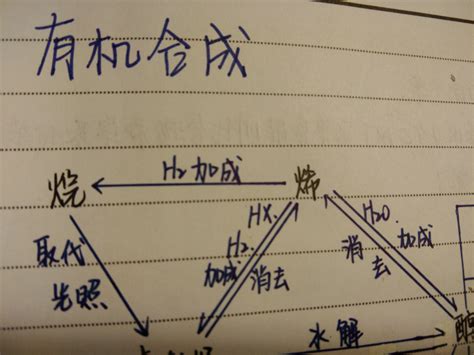 有机合成
H2加成
烷
烯
取代
光照
HX.
H2.
加成
消去
H2O.
加成
消
去
水解